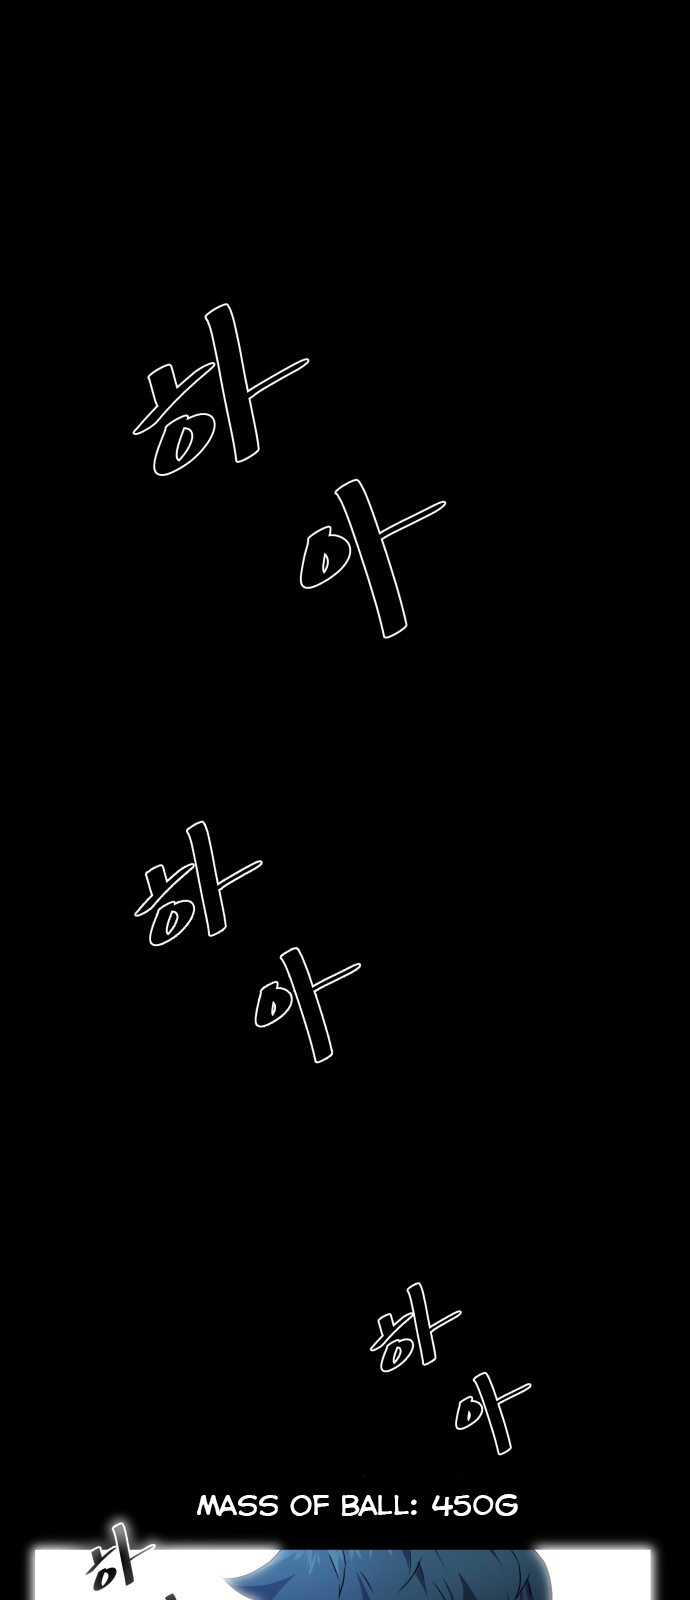 하
아
하
아
하
아
MASS OF BALL: 450G
하